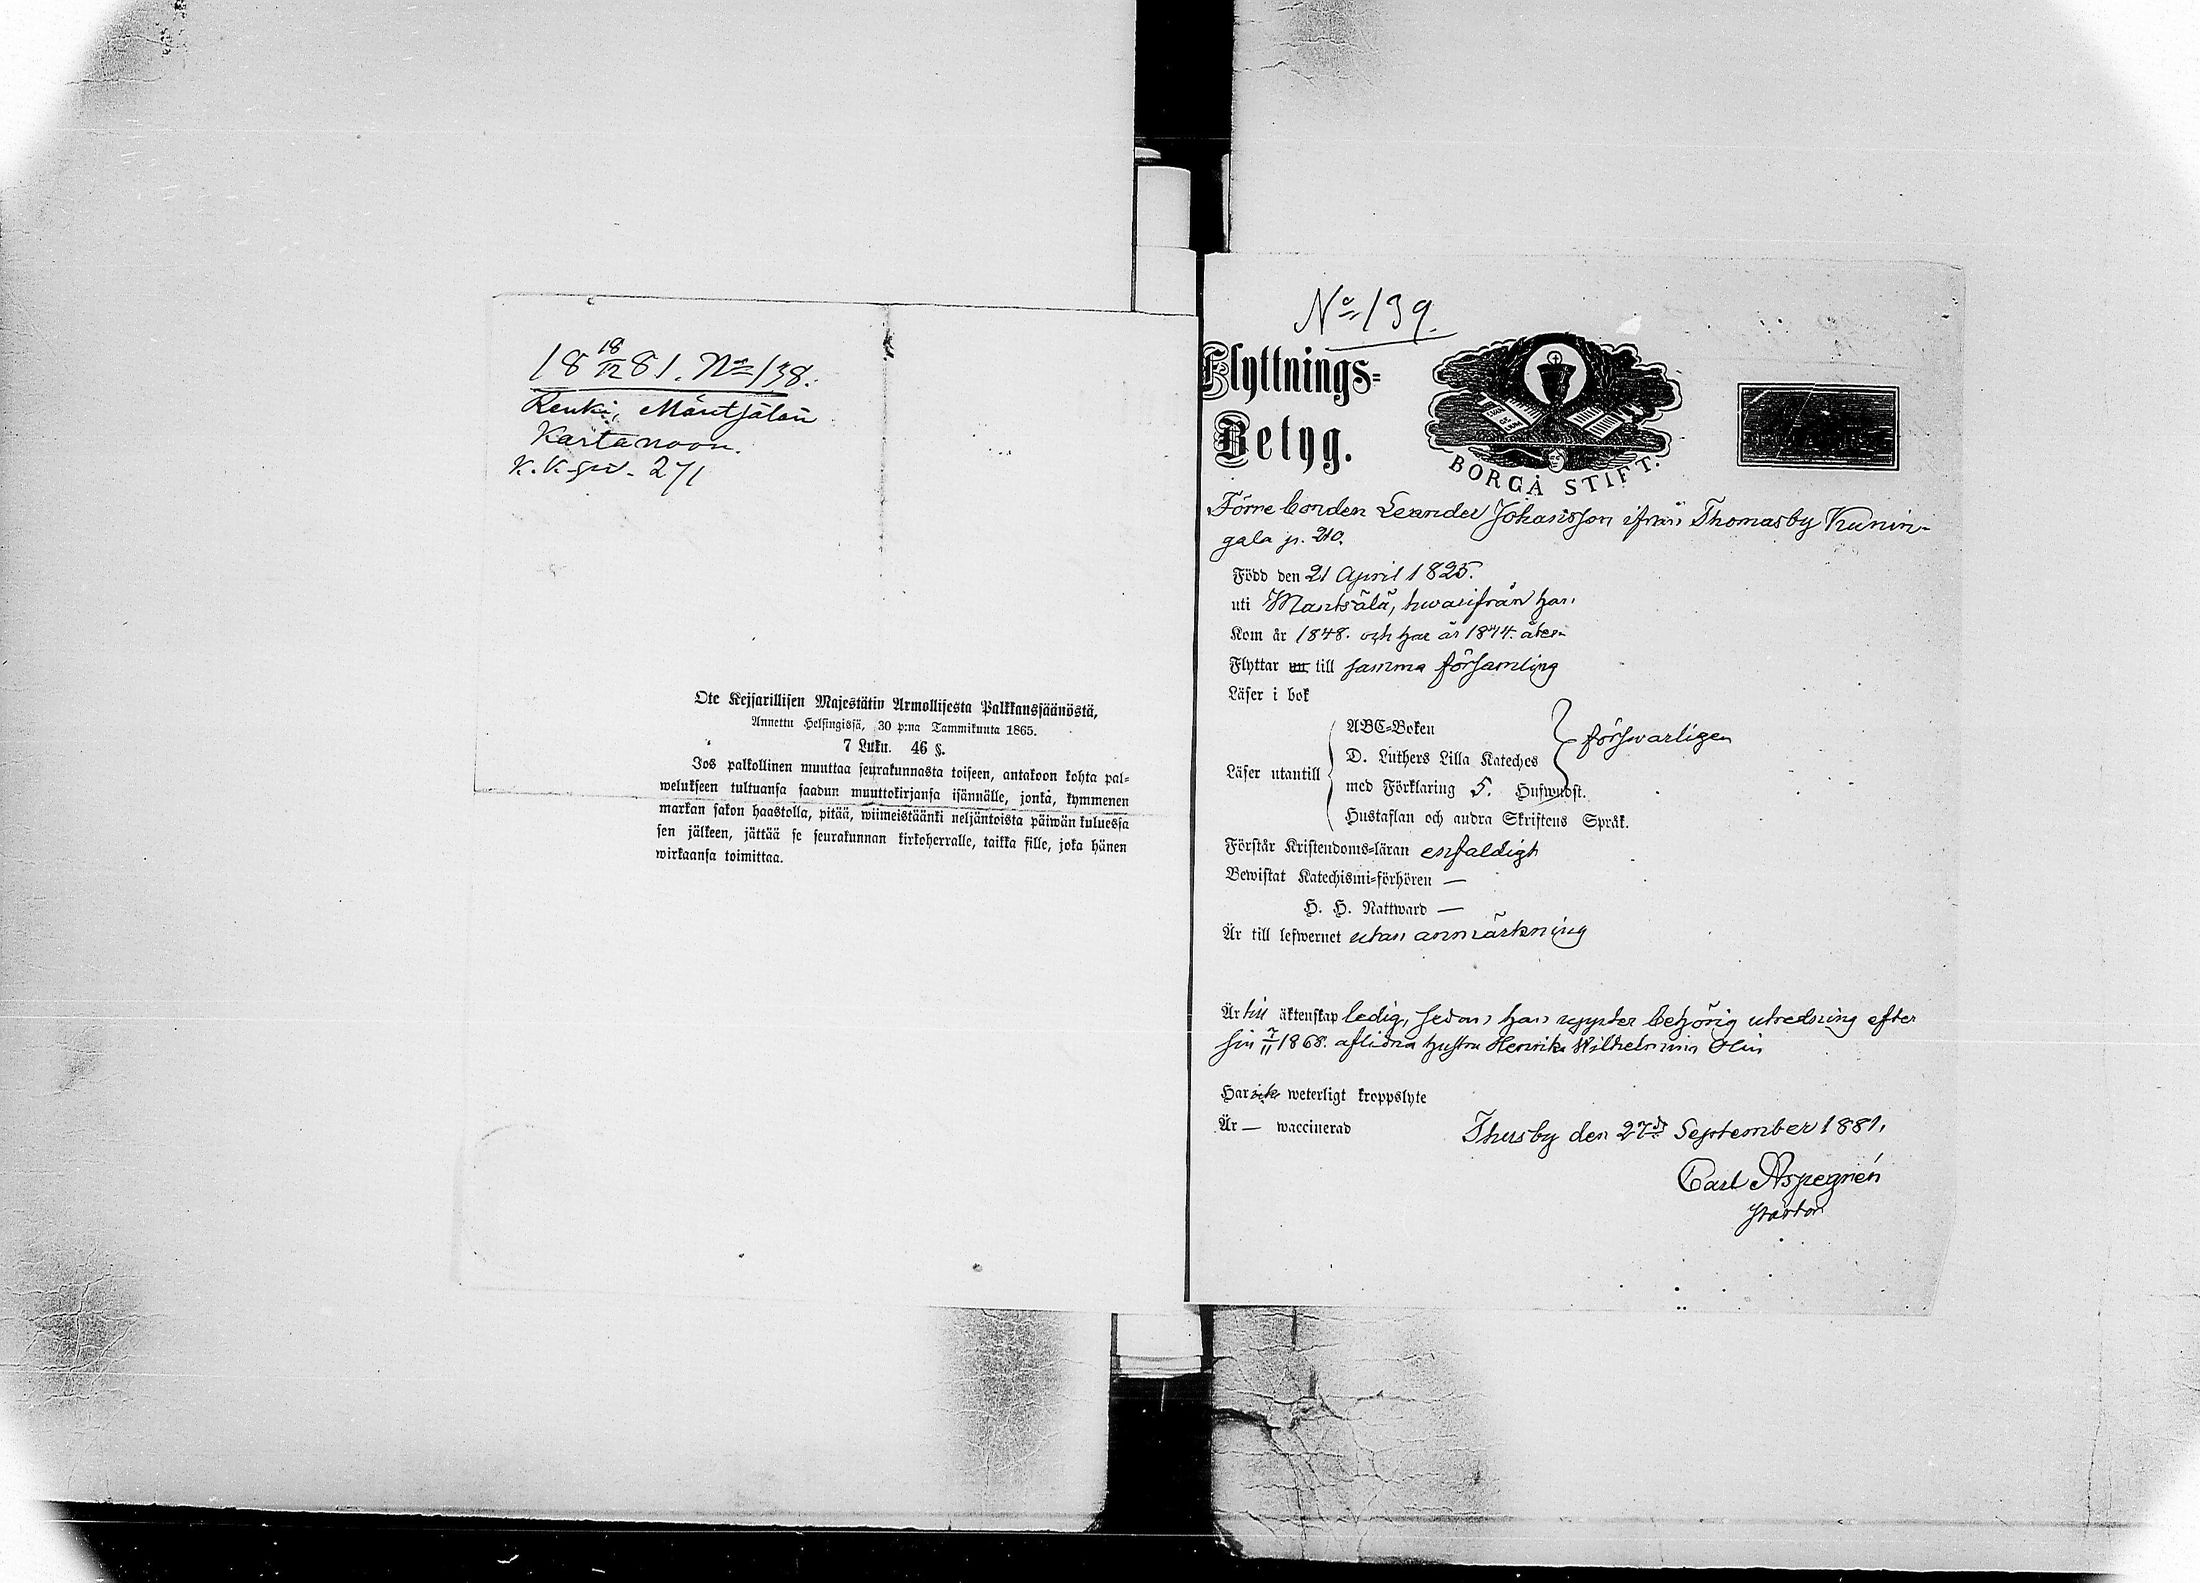 18 18/12 81. No 138.
Renki, Mäntsälän
Kartanoon.
K. K. 271
Ote Kejsarillisen Majestätin Armollisesta Palkkaussäänöstä,
Annettu Helsingissä, 30 p:na Tammikuuta 1865.
7 Luku. 46 §.
Jos palkollinen muuttaa seurakunnasta toiseen, antakoon kohta pal=
welukseen tultuansa saadun muuttokirjansa isännälle, jonka, kymmenen
markan sakon haastolla, pitää, wiimeistäänki neljäntoista päiwän kuluessa
sen jälkeen, jättää se seurakunnan kirkoherralle, taikka sille, joka hänen
wirkaansa toimittaa.
No 139.
Flyttnings=
Betyg.
BORGÅ STIFT.
Förre bonden Leander Johansson ifrån Thomasby Kunin-
gala p. 210.
Född den 21 April 1825.
uti Mantsälä, hwarifrån han
Kom år 1848. och har år 1874. åter-
Flyttar nu till samma församling
Läser i bok
ABC=Boken
D. Luthers Lilla Kateches
Läser utantill
med Förklaring 5. Hufwudst.
Hustaflan och andra Skriftens Språk.
förswarligen
Förstår Kristendoms=läran enfaldigt
Bewistat Katechismi=förhören —
H. H. Nattward —
Är till lefwernet utan anmärkning
Är till äktenskap ledig, sedan han uppter behörig utredning efter
sin 7/11 1868. aflidna hustru Henrika Wilhelmina Olin
Har icke weterligt kroppslyte
Är — waccinerad
Thusby den 27de September 1881.
Carl Aspegrén